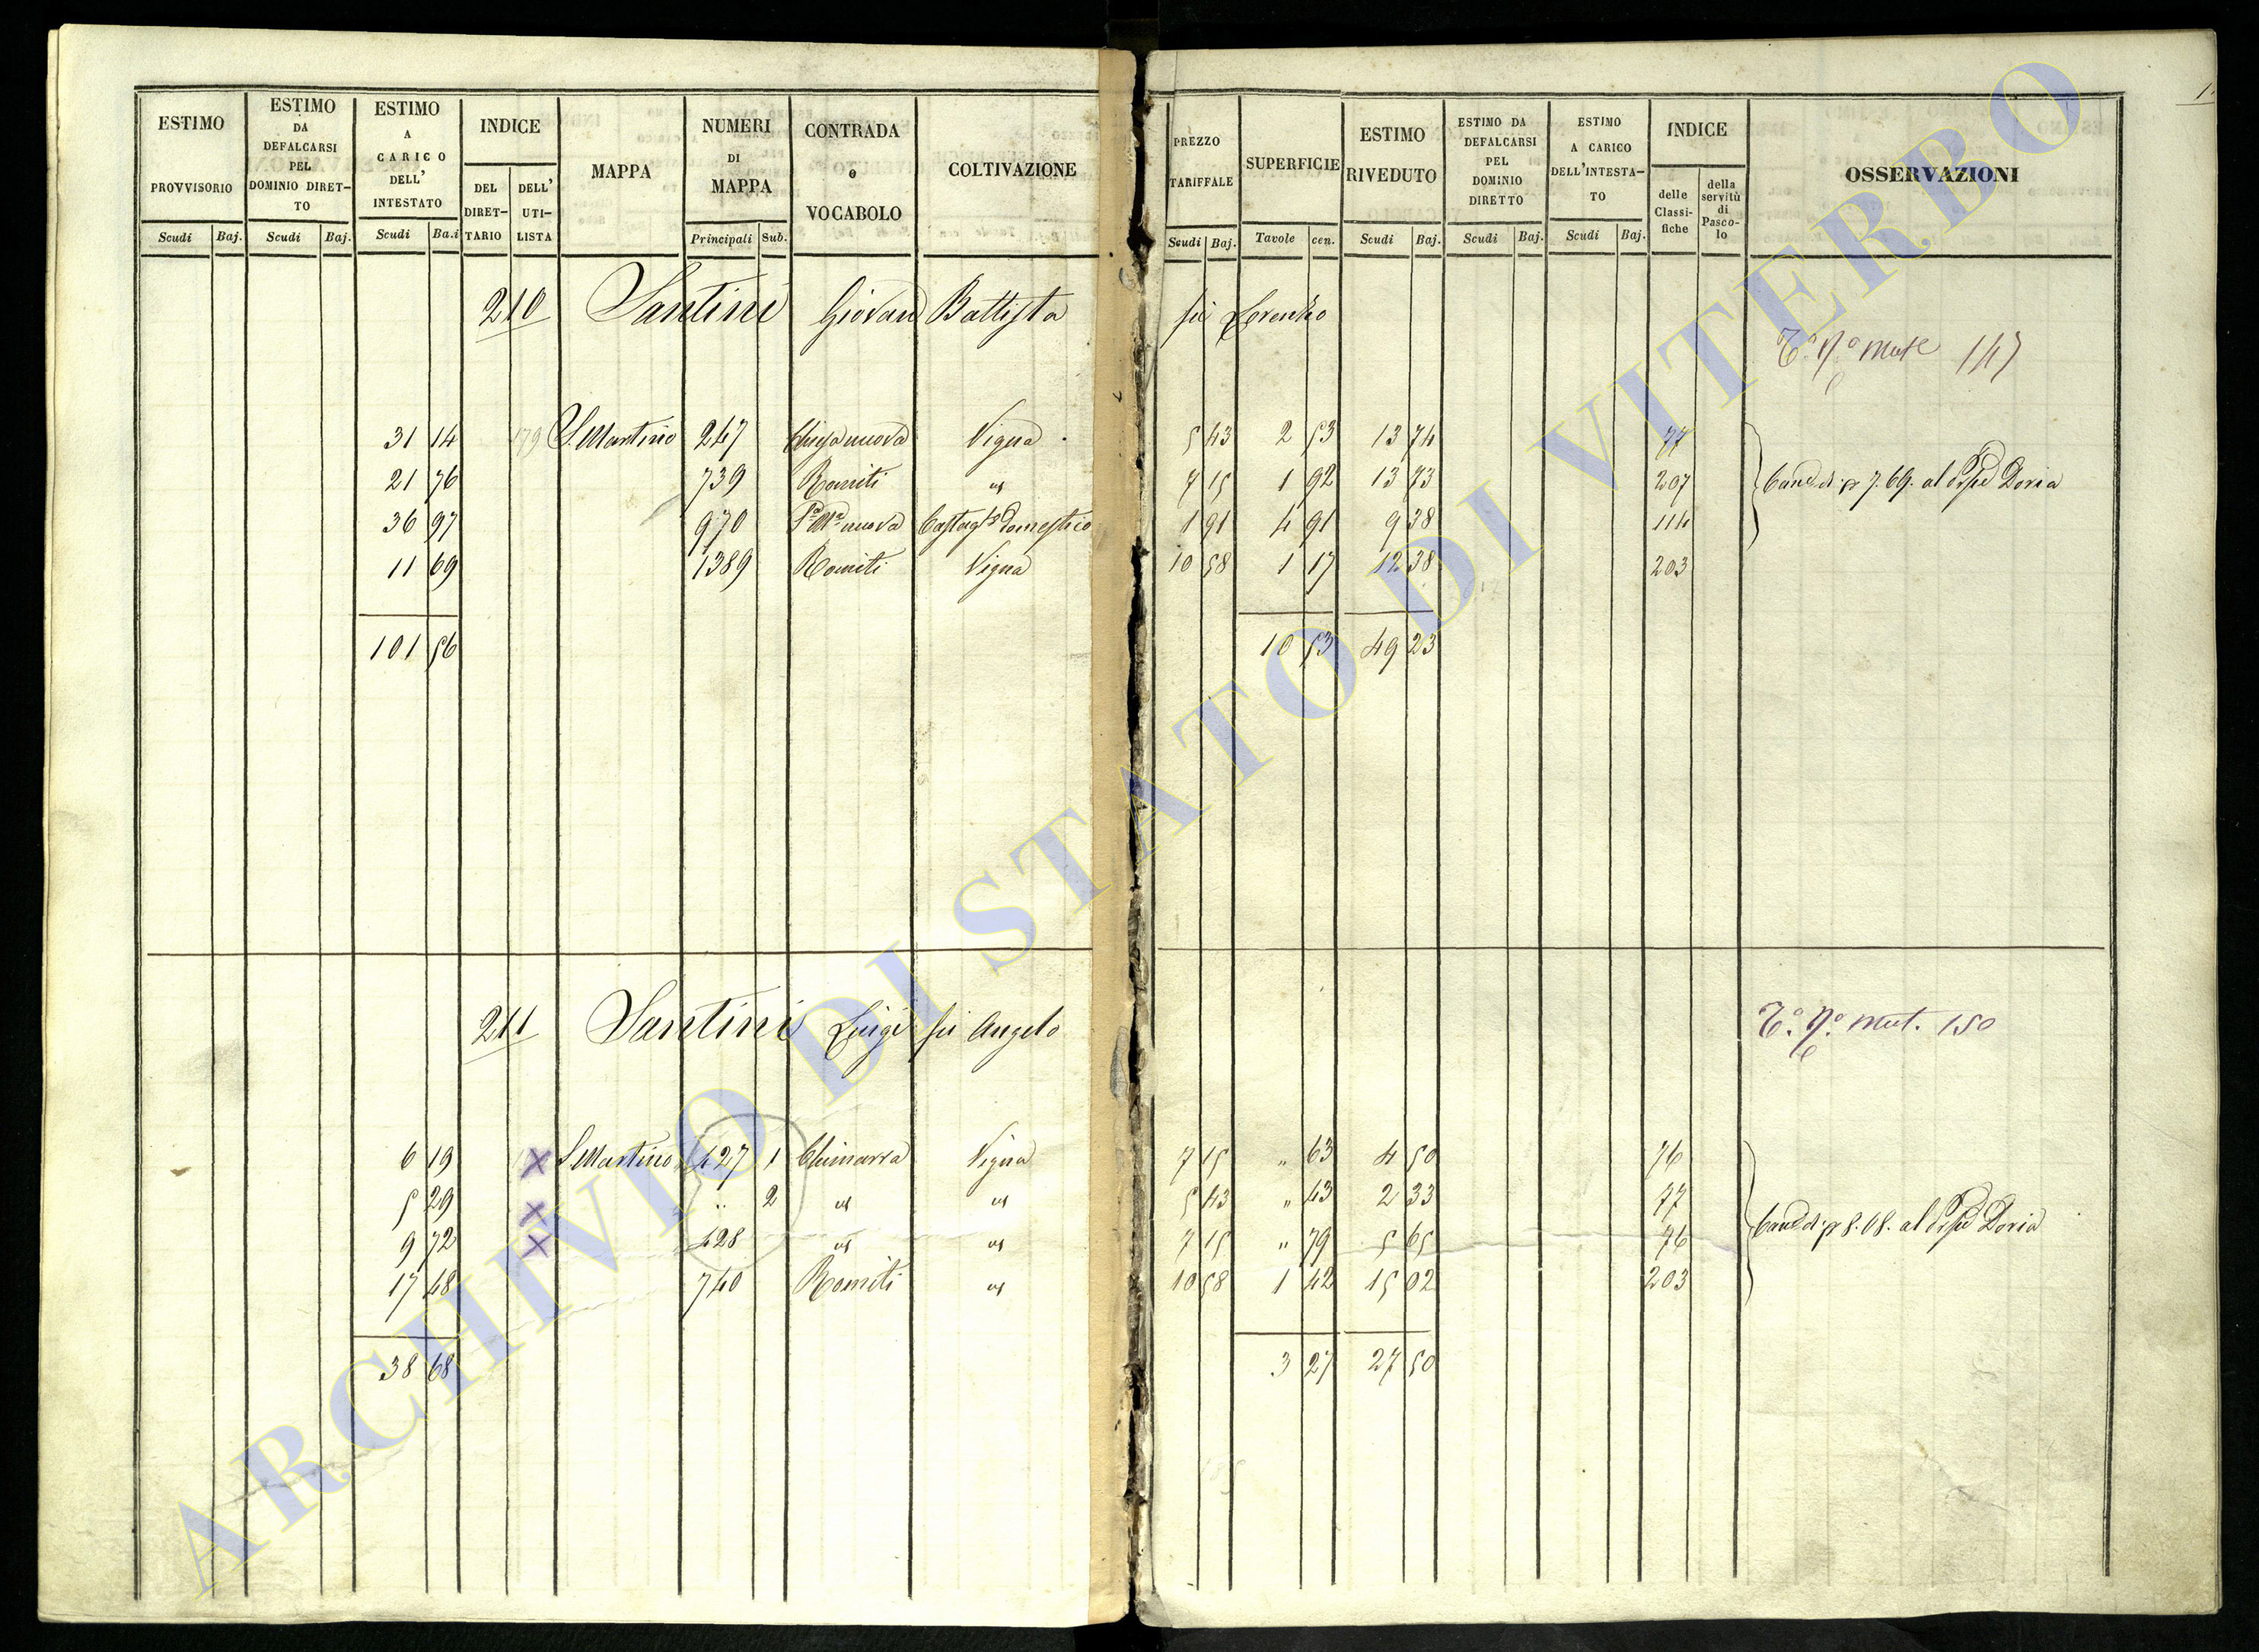 ESTIMO PROVVISORIO Scudi Baj.
ESTIMO DA DEFALCARSI PEL DOMINIO DIRET-TO Scudi Baj.
ESTIMO A CARICO DELL' INTESTATO Scudi Ba.i
INDICE DEL DIRET-TARIO DELL' UTI-LISTA
MAPPA
NUMERI DI MAPPA Principali Sub.
CONTRADA e VOCABOLO
COLTIVAZIONE
PREZZO TARIFFALE Scudi Baj.
SUPERFICIE Tavole cen.
ESTIMO RIVEDUTO Scudi Baj.
ESTIMO DA DEFALCARSI PEL DOMINIO DIRETTO Scudi Baj.
ESTIMO A CARICO DELL'INTESTA-TO Scudi Baj.
INDICE delle Classi-fiche della servitù di Pasco-lo
OSSERVAZIONI
210 Santini Giovan Battista fu Lorenzo
147
31 14 179 S. Martino 247 Chiesa nuova Vigna 5 43 2 53 13 74 77
21 76 739 Romiti id 7 15 1 92 13 73 207 7.69. al Doria
36 97 970 nuova domestico 1 91 4 91 9 38 114
11 69 1389 Romiti Vigna 10 58 1 17 12 38 203
101 56 10 53 49 23
211 Santini Luigi fu Angelo
Mut. 150
6 19 X S. Martino 427 1 Chimarra Vigna 7 15 " 63 4 50 76
5 29 X " 2 id id 5 43 " 43 2 33 77
9 72 X 428 id id 7 15 " 79 5 65 76 8.08. al Doria
17 48 740 Romiti id 10 58 1 42 15 02 203
38 68 3 27 27 50
ARCHIVIO DI STATO DI VITERBO